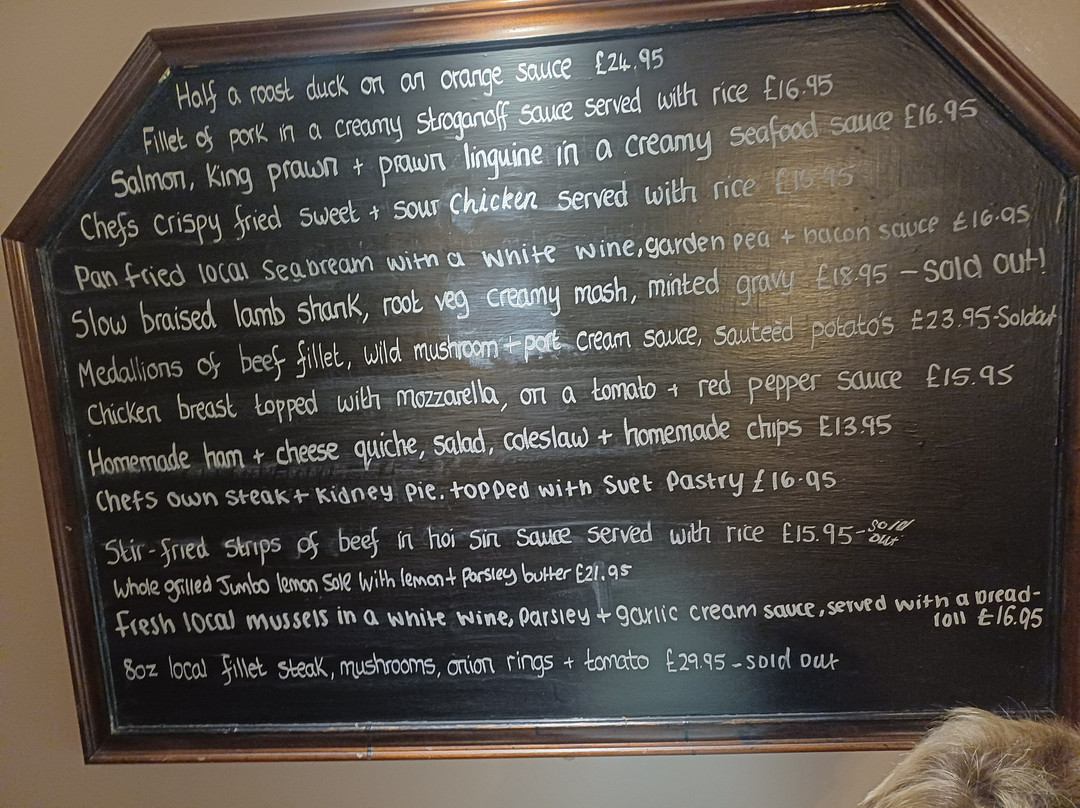 Half a roast duck on an orange sauce £24.95
Fillet of pork in a creamy Stroganoff sauce served with rice £16.95
Salmon, King prawn + prawn linguine in a creamy seafood sauce £16.95
Chefs crispy fried sweet + sour chicken served with rice £16.95
Pan fried local Seabream with a white wine, garden pea + bacon sauce £16.95
Slow braised lamb shank, root veg creamy mash, minted gravy £18.95 - Sold out!
Medallions of beef fillet, wild mushroom + port cream sauce, sauteéd potato's £23.95-Soldout
Chicken breast topped with mozzarella, on a tomato + red pepper sauce £15.95
Homemade ham + cheese quiche, salad, coleslaw + homemade chips £13.95
Chefs own steak + kidney pie. topped with Suet Pastry £16.95
Stir-fried strips of beef in hoi sin sauce served with rice £15.95-sold out
Whole grilled Jumbo lemon Sole With lemon + Parsley butter £21.95
Fresh local mussels in a white wine, Parsley + garlic cream sauce, served with a bread-
roll £16.95
8oz local fillet steak, mushrooms, onion rings + tomato £29.95 - sold out